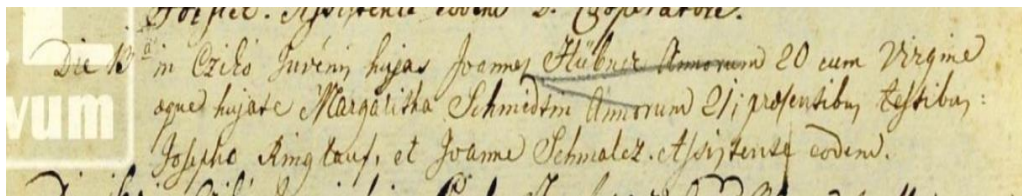 Josepho. Assistente eodem D. Cooperatore.
Die 13ª in Czikó Juvenis hujas Joannes Hübner Annorum 20 cum Virgine
vum
aeque hujate Margaritha Schmidtin Annorum 21; praesentibus testibus:
Josepho Ringlauf, et Joanne Schmalcz. Assistente eodem.